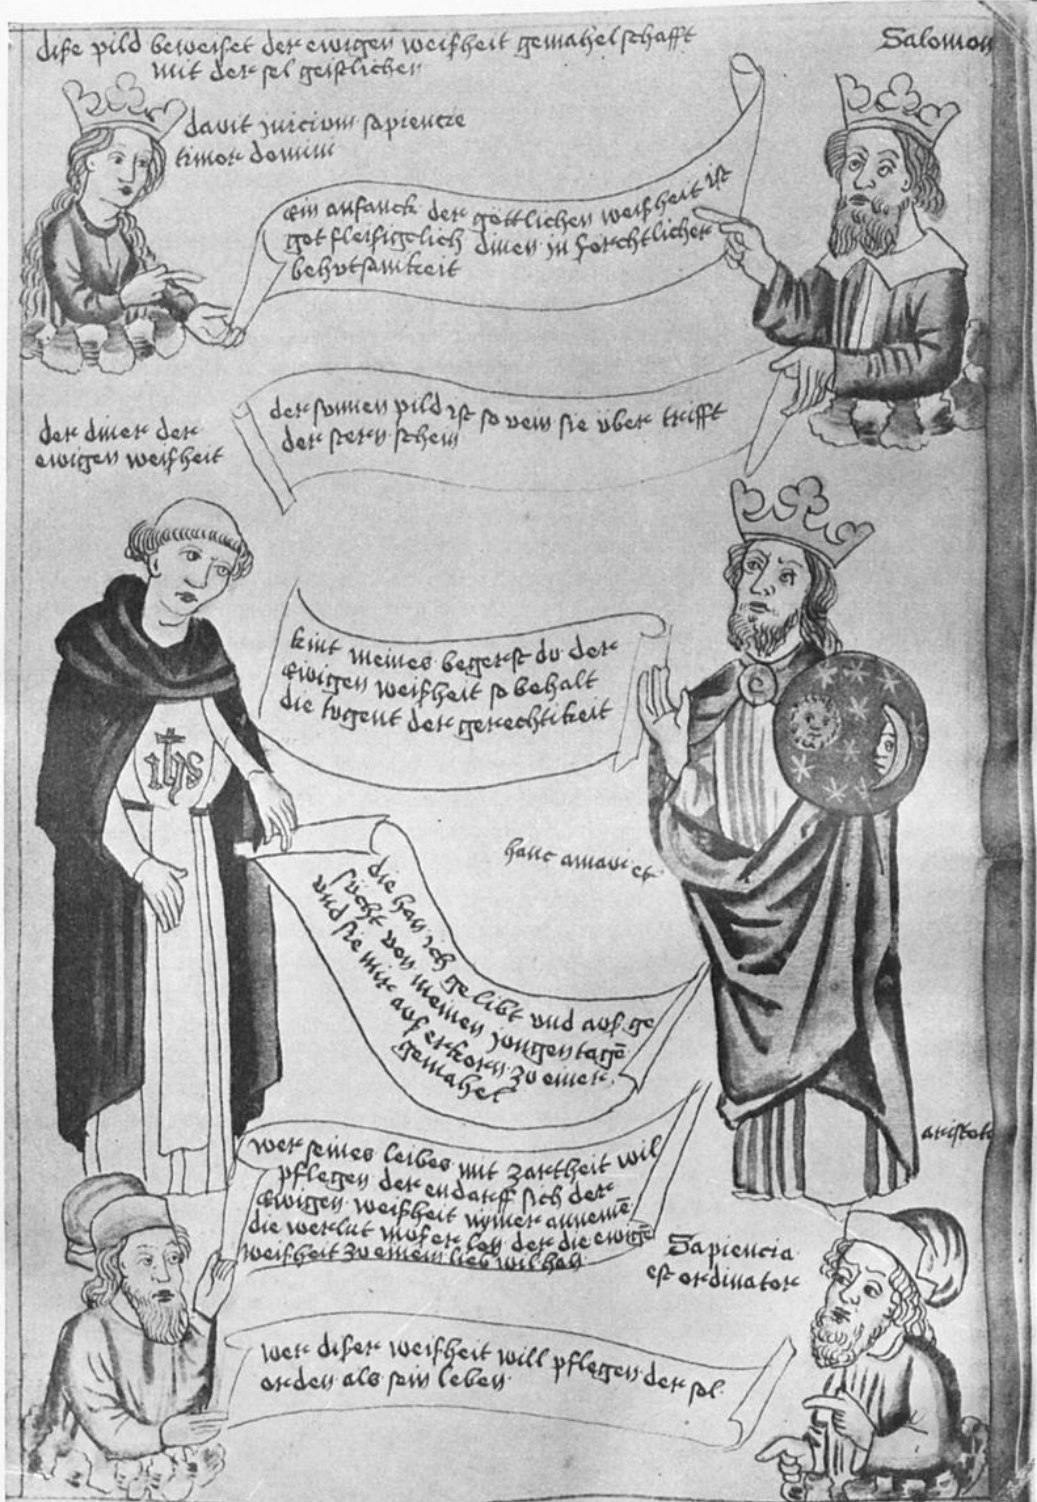 dise pild beweiset der ewigen weisheit gemahelschafft
mit der sel geistlicher
Salomon
davit inicium sapiencie
timor domini
ein anfanck der göttlichen weisheit ist
got fleisigelich dinen in forchtlicher
behutsamkeit
der sunnen pild ist so vein sie über trifft
der stern schein
der diner der
ewigen weisheit
kint meines begerst du der
ewigen weisheit so behalt
die tugent der gerechtikeit
ihs
hanc amavi et
die han ich gelibt und aus ge
sücht von meinen jungen tagē
und sie mir aus erkorn zu einer
gemahel
aristot
wer seines leibes mit zartheit wil
pflegen der endarff sich der
ewigen weisheit nymer annemē
die werlut muser lon der die ewigē
weisheit zu einem lieb wil han
Sapiencia
est ordinator
wer diser weisheit will pflegen der sol
orden als sein leben